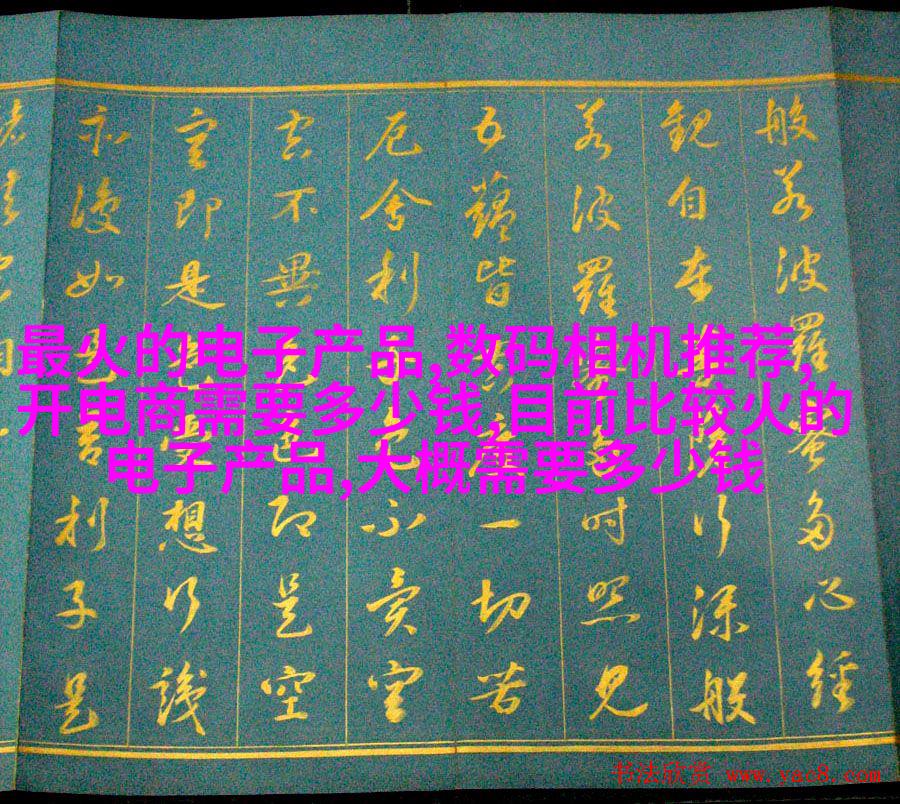 最火的电子产品,数码相机推荐,
开电商需要多少钱,目前比较火的
电子产品,大概需要多少钱
般若波羅蜜多心經
觀自在菩薩行深般
若波羅蜜多時照見
五蘊皆空度一切苦
厄舍利子色不異空
空不異色色即是空
空即是色受想行識
亦復如是舍利子是
书法欣赏 www.yac8.com